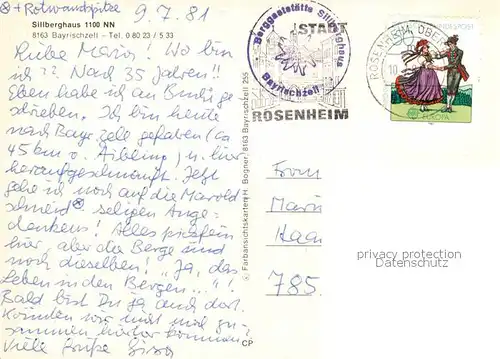 ⊛ + Rotwandspitze
9.7.81
Sillberghaus 1100 NN
8163 Bayrischzell - Tel. 0 80 23 / 5 33
Liebe Maria! Wo bin
ich?? Nach 35 Jahren!!
Eben habe ich an geschrieben. Ich bin heute
nach Bayr.zell gefahren (ca
45 km v. Aibling) u. hier
heraufgeschnauft. Jetzt
gehe ich noch auf die Marold
schneid ⊛, seligen Ange-
denkens! Alles
hier, aber die Berge sind
noch dieselben! "Ja, das
Leben in den Bergen..."!
Bald bist Du ja auch dort.
Könnten wir mal zu-
sammen hierher kommen
Viele Grüße
Berggaststätte Sillberghaus
Bayrischzell
STADT
ROSENHEIM
ROSENHEIM, OBERB
DEUTSCHE BUNDESPOST
EUROPA
© Farbansichtskarten H. Bogner, 8163 Bayrischzell 255
CP
785
privacy protection
Datenschutz